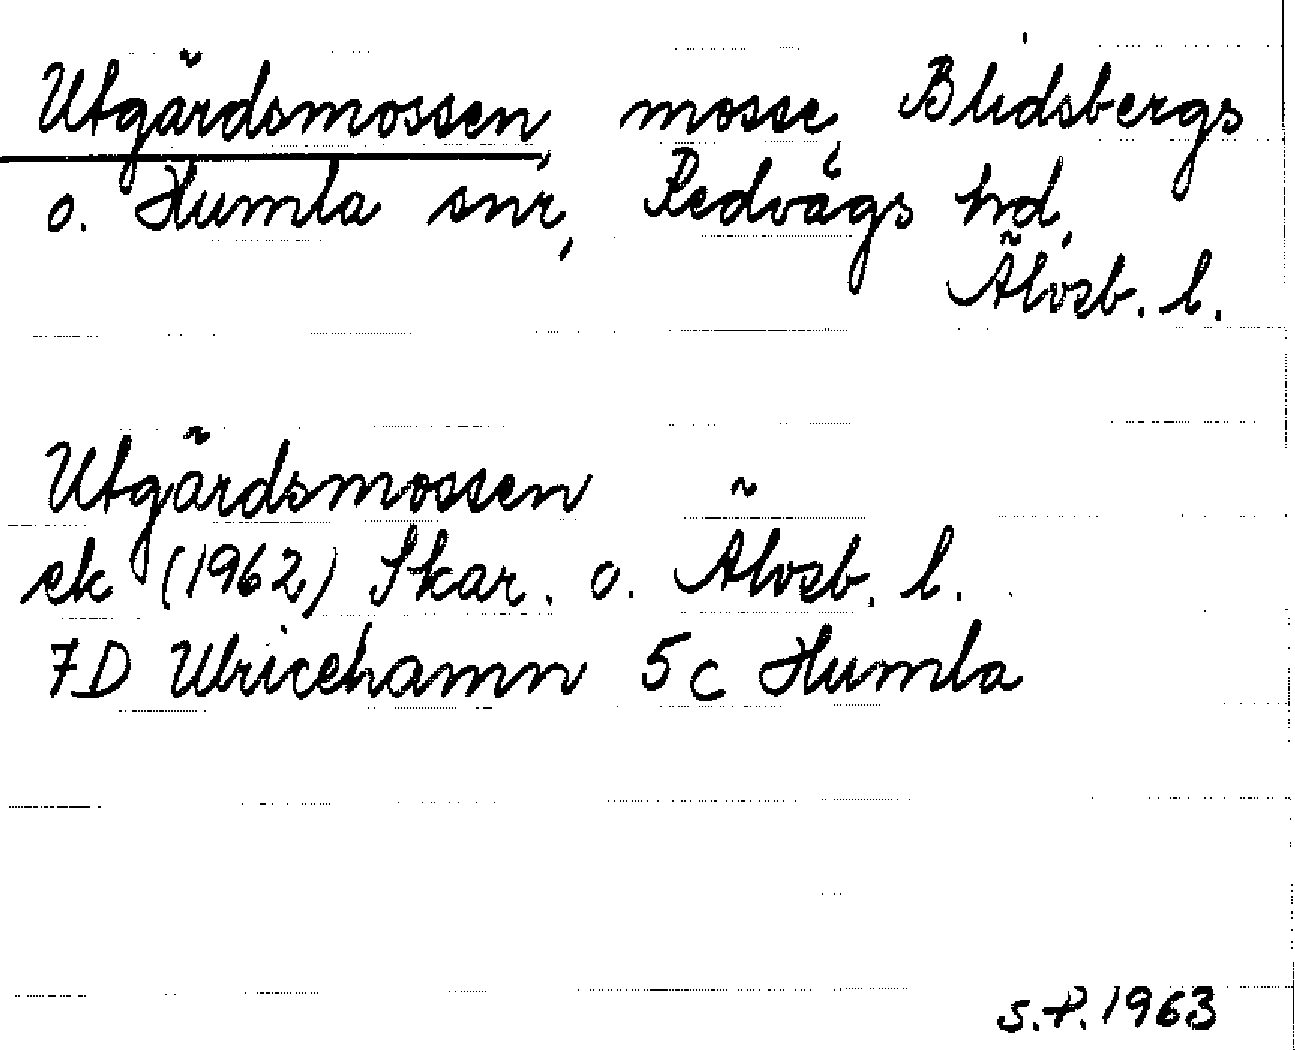 Utgärdsmossen, mosse, Blidsbergs
o. Humla snr, Redvägs hd,
Älvsb. l.
Utgärdsmossen
ek (1962) Skar. o. Älvsb. l.
7D Ulricehamn 5c Humla
S.P. 1963